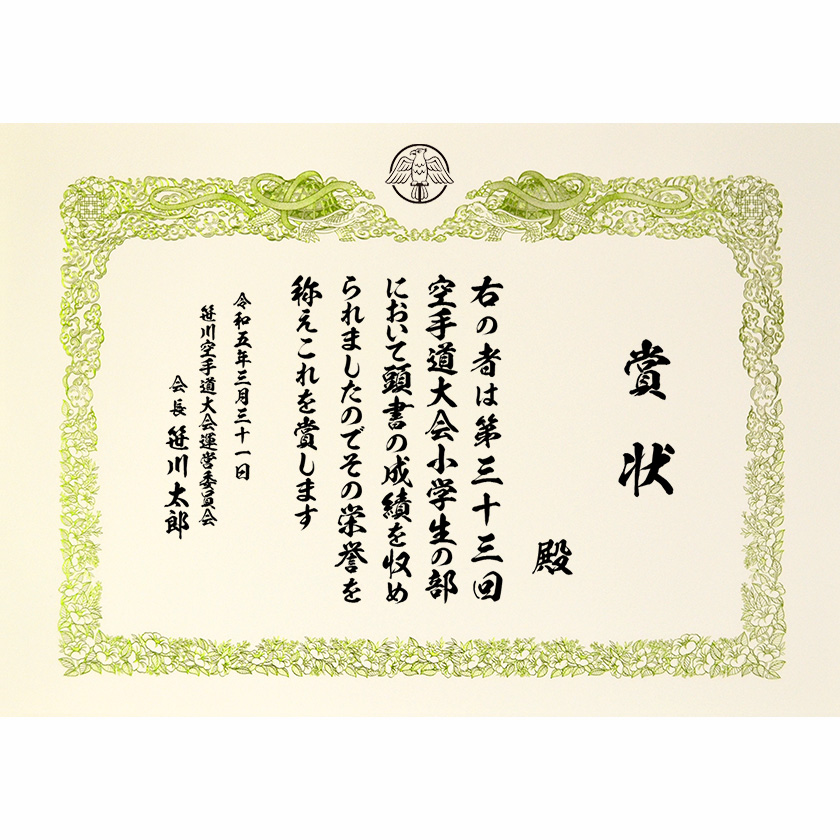 賞状
殿
右の者は第三十三回
空手道大会小学生の部
において頭書の成績を収め
られましたのでその栄誉を
称えこれを賞します
令和五年三月三十一日
笹川空手道大会運営委員会
会長 笹川太郎